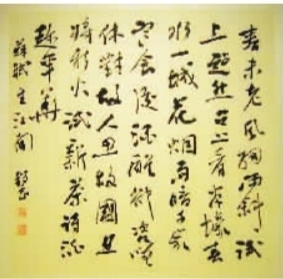 春未老風細柳斜々試
上超然台上看半壕春
水一城花烟雨暗千家
寒食後酒醒卻咨嗟
休對故人思故國且
將新火試新茶詩酒
趁年華
蘇軾望江南